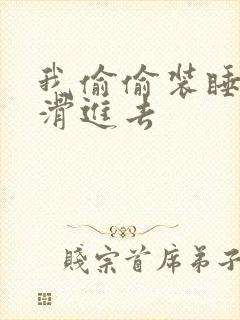 我偷偷装睡
滑進去
賤宗首席弟子